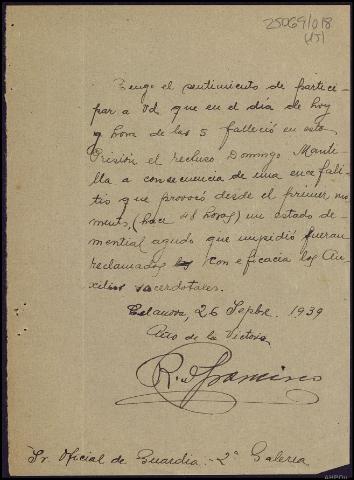 25069/018
Tengo el sentimiento de partici-
par a Vd que en el día de hoy
y hora de las 5 falleció en esta
Prisión el recluso Domingo Mante-
lla a consecuencia de una encefali-
tis que provocó desde el primer mo-
mento, (hace 48 horas) un estado de-
mential agudo que impidió fueran
reclamados con eficacia los Au-
xilios sacerdotales.
Celanova, 26 Sepbre. 1939
Año de la Victoria
R. Francisco
Sr. Oficial de Guardia.- 2ª Galería